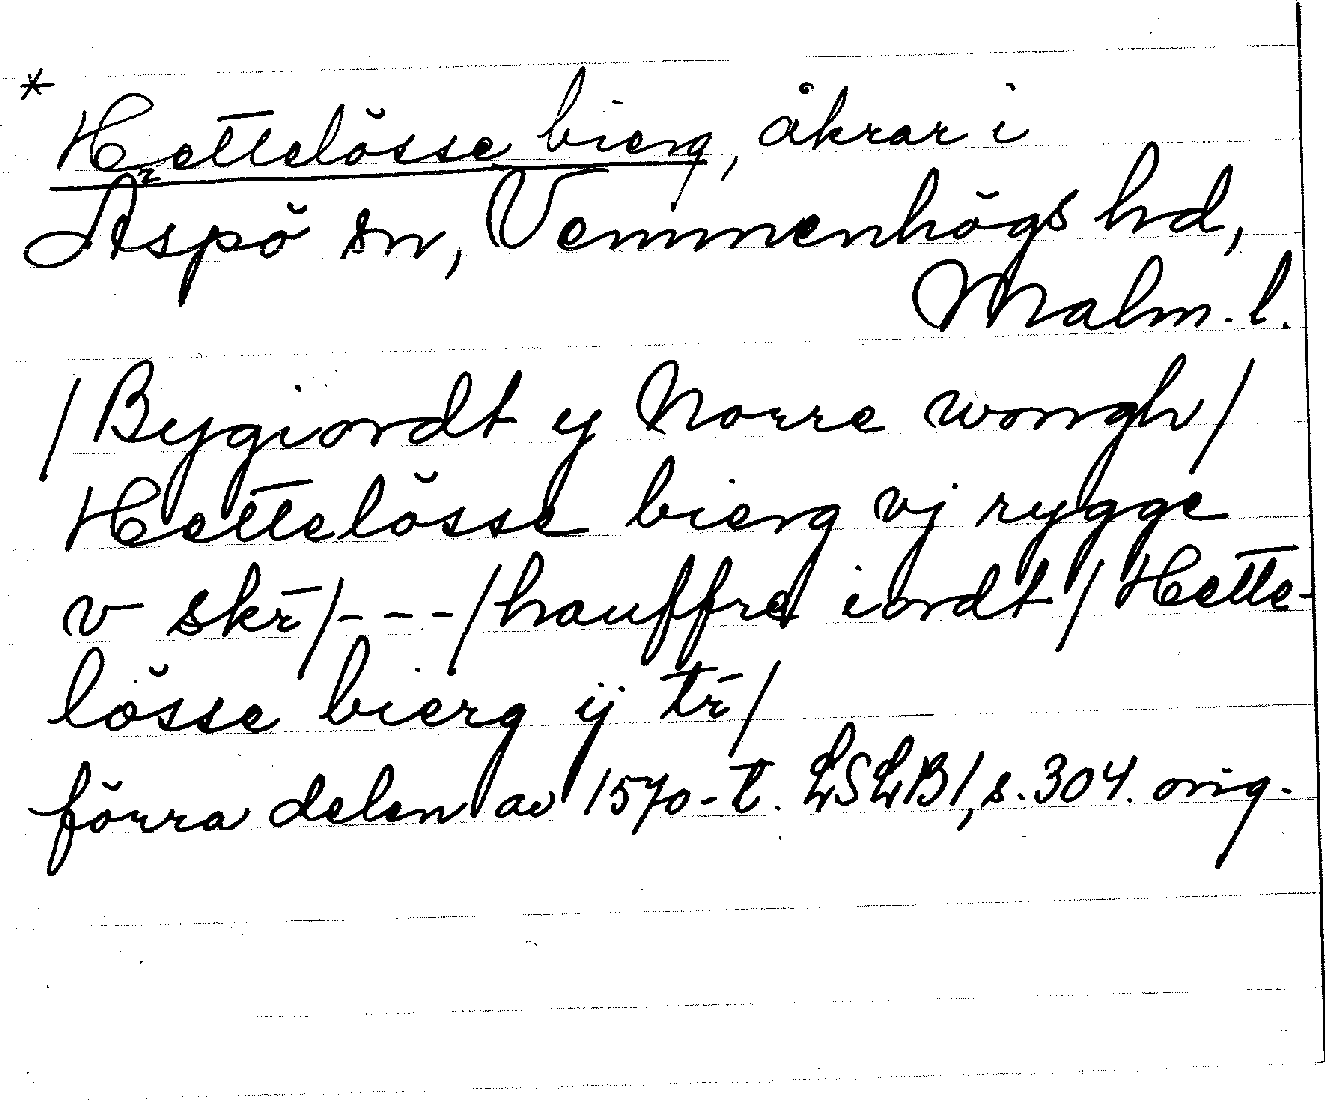 * Hettelösse bierg, åkrar i
Äspö sn, Vemmenhögs hd,
Malm. l.
/ Bygiordt y Norre wongh /
Hettelösse bierg vj rygge
v skr̄ /---/ hauffre iordt / Hette-
lösse bierg ij tr̄ /
förra delen av 1570-t. LSLB1, s. 304. orig.